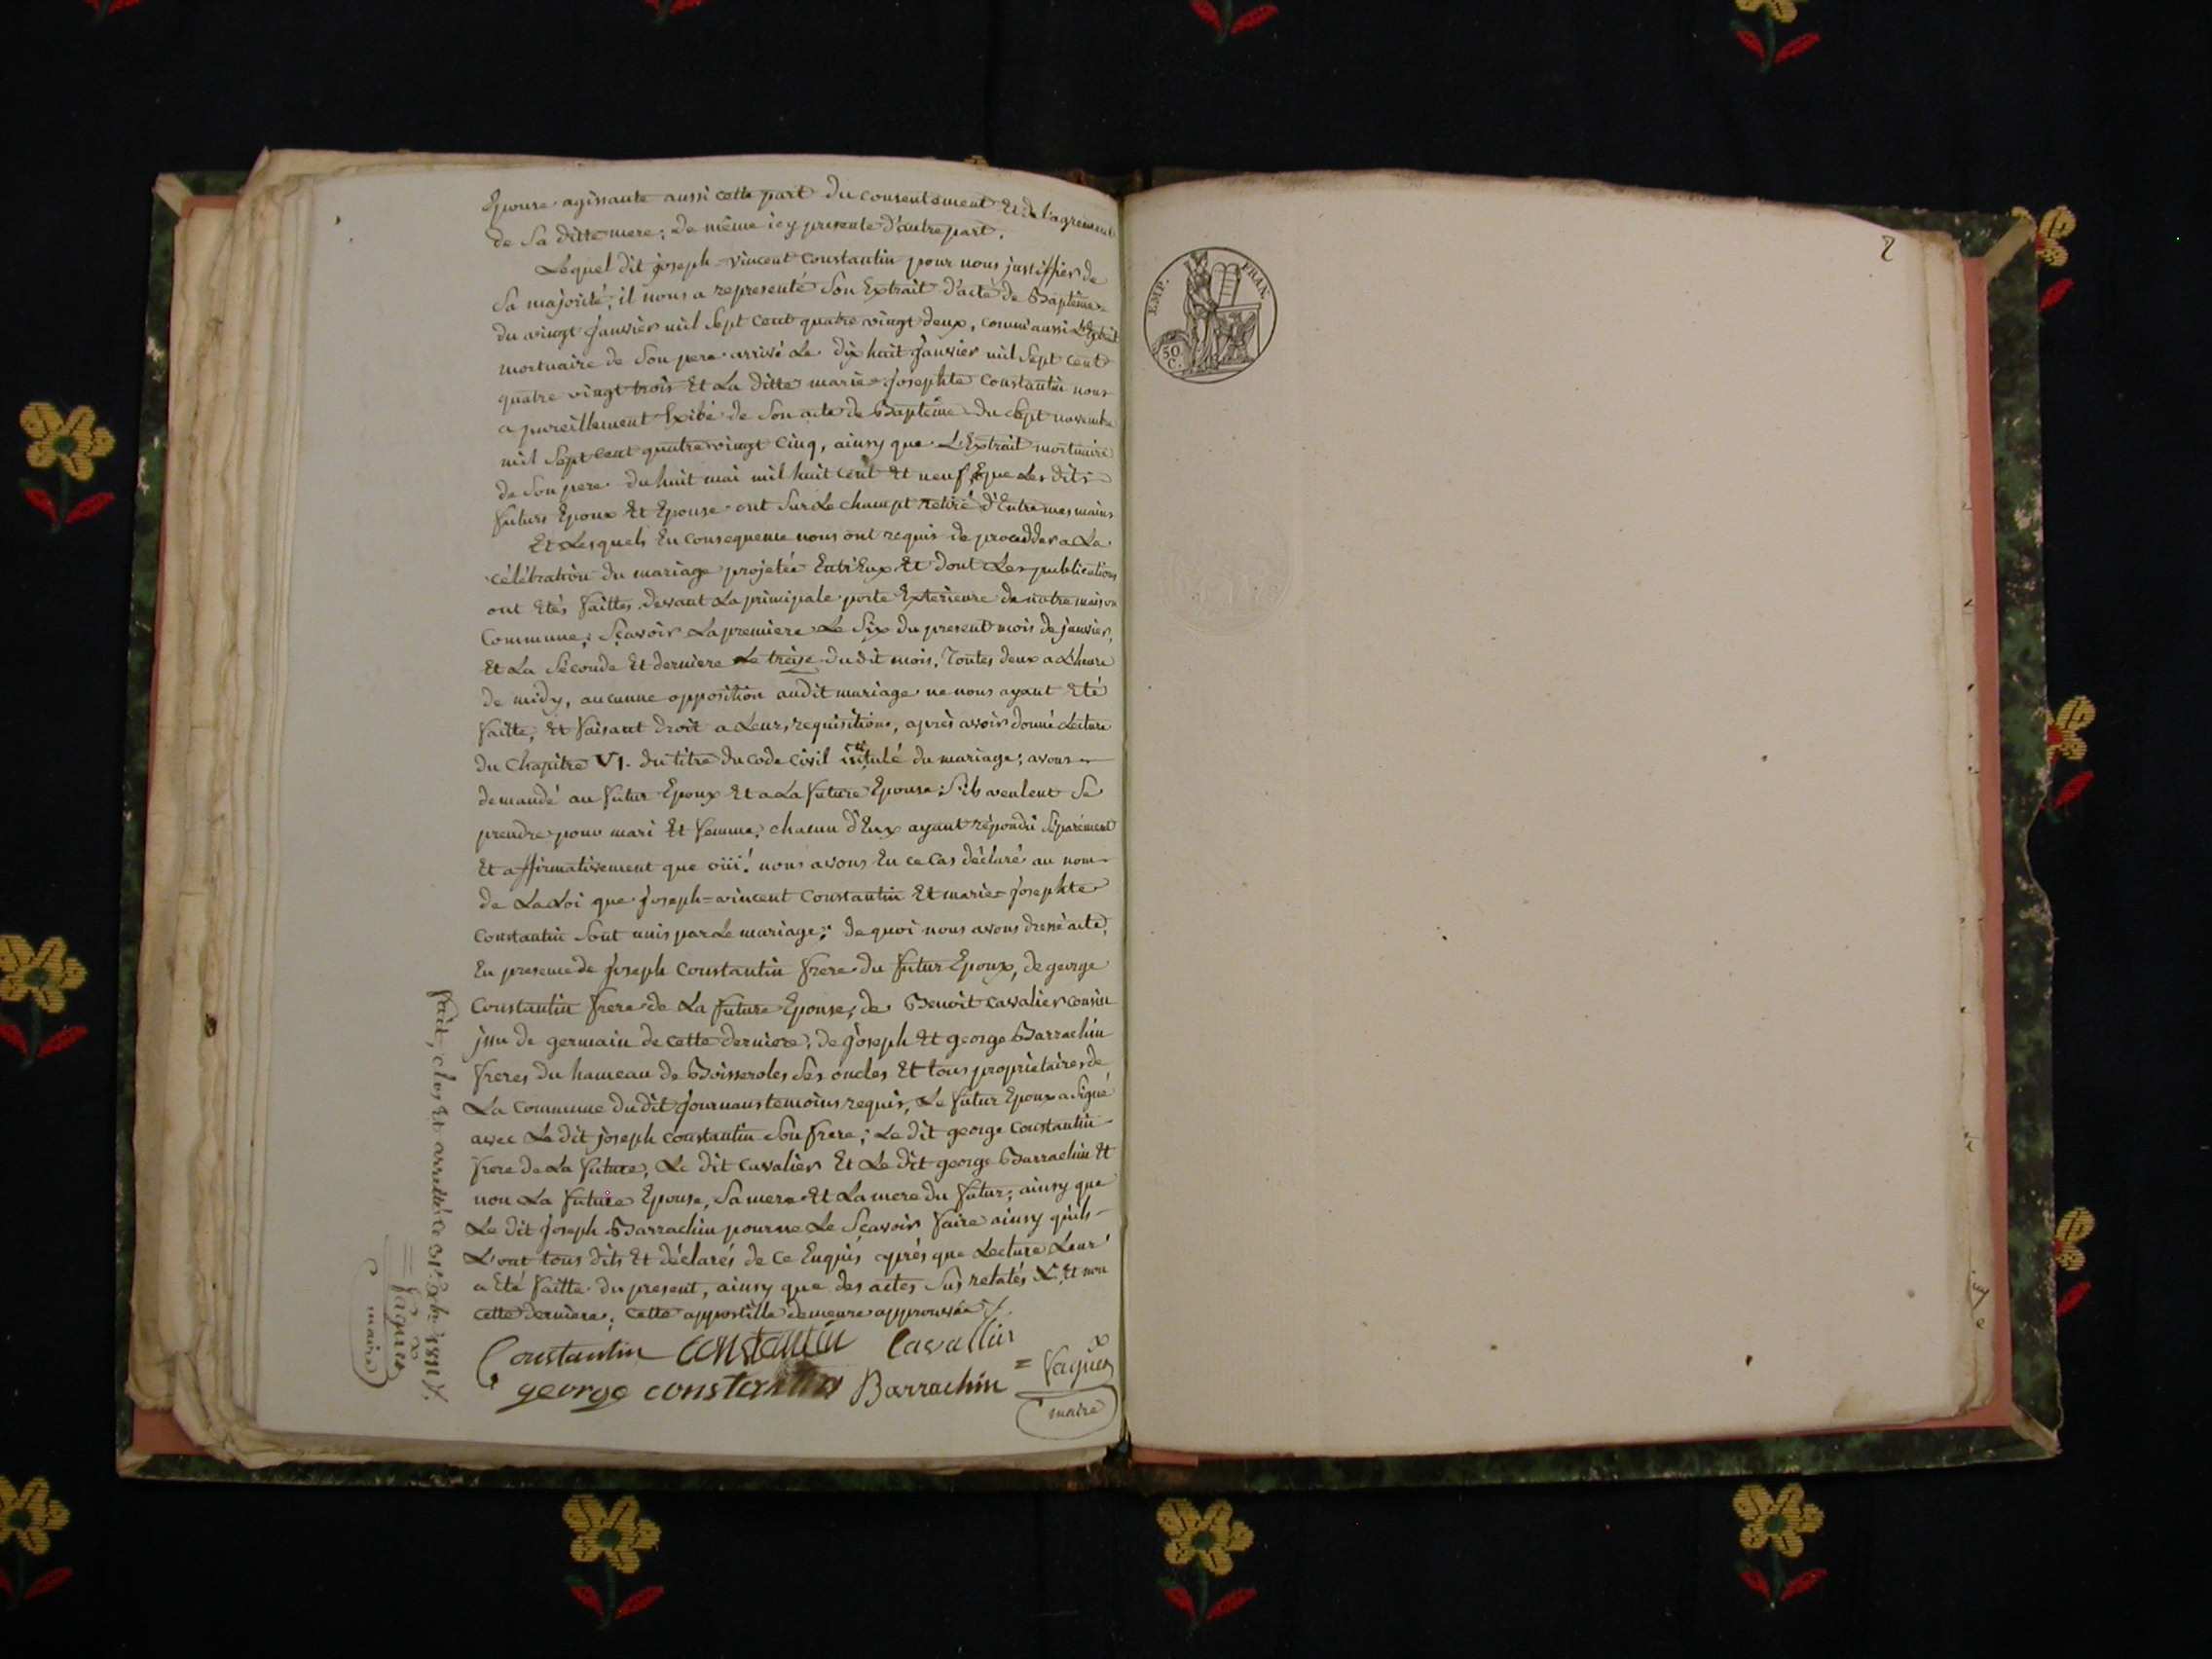 Epouse agissante aussi cette part du consentement Et de l'agrement
de Sa ditte mere; de même icy presente d'autre part.
Lequel dit joseph-vincent Constantin pour nous justiffier de
Sa majorité, il nous a representé Son Extrait d'acte de Baptême
du vingt janvier mil Sept Cent quatre vingt deux, comm'aussi L'Extrait
mortuaire de Son pere arrivé Le dix huit janvier mil Sept cent
quatre vingt trois Et La ditte marie-josephte Constantin nous
a pareillement Exibé de Son acte de Baptême du Sept novembre
mil Sept Cent quatre vingt Cinq, ainsy que L'Extrait mortuaire
de Son pere du huit mai mil huit Cent Et neuf, que Les dits
futurs Epoux Et Epouse ont Sur Le champt retiré d'Entre mes mains
Et Lesquels En Consequence nous ont requis de procedder a La
célébration du mariage projetée Entr'Eux Et dont Les publications
ont Etés faittes devant La principale porte Exterieure de notre maison
Commune; Sçavoir La premiere Le Six du present mois de janvier,
Et La Séconde Et derniere Le treise du dit mois, Toutes deux a L'heure
de midy, aucunne opposition audit mariage ne nous ayant Eté
faitte, Et faisant droit a Leurs requisitions, après avoir donné Lecture
du Chapitre VI. du titre du code Civil intitulé du mariage; avons
demandé au futur Epoux Et a La future Epouse; S'ils veulent Se
prendre pour mari Et femme, chacun d'Eux ayant répondu Séparément
Et affirmativement que oüi! nous avons En ce Cas déclaré au nom
de La Loi que joseph=vincent Constantin Et marie-josephte
Constantin Sont unis par Le mariage; de quoi nous avons dressé acte,
En presence de joseph Constantin frere du futur Epoux, de george
Constantin frere de La future Epouse, de Benoit Cavalier Cousin
de germain de cette derniere, de joseph Et george Barrachin
freres du hameau de Boisseroles Ses oncles Et tous proprietaires de
La Commune du dit journans temoins requis, Le futur Epoux a Signé
avec Le dit joseph constantin Son frere; Le dit george Constantin
frere de La future, Le dit Cavalier Et Le dit george Barrachin Et
non La future Epouse, Sa mere Et La mere du futur; ainsy que
Le dit joseph Barrachin pour ne Le Sçavoir faire ainsy qu'ils
L'ont tous dits Et déclarés de ce Enquis après que Lecture Leur
a Eté faitte du present, ainsy que des actes Sus relatés X Et non
cette derniere; Cette appostille demeure approuvée
Constantin Constantin Cavallier
george constantin Barrachin = faguet
maire
fait, clos Et arretté ce 31 Xbre 1811
= faguet
maire
EMP. FRAN.
50 C.
2